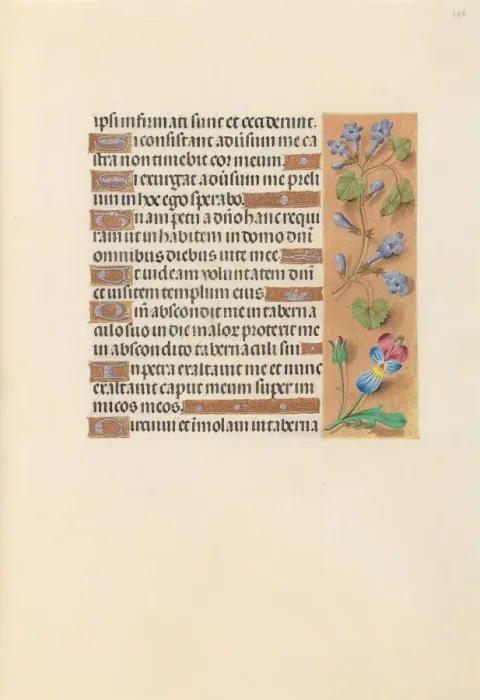 ipsi infirmati sunt et ceciderunt.
Si consistant adūsum me ca
stra non timebit cor meum.
Si exurgat adūsum me preli
um in hoc ego sperabo.
Unam petii a dn̄o hanc requi
ram ut inhabitem in domo dn̄i
omnibus diebus vite mee.
Ut videam voluntatem dn̄i
et visitem templum eius.
Qm̄ abscondit me in taberna
culo suo in die malor protexit me
in abscondito tabernaculi sui
In petra exaltavit me et nunc
exaltavit caput meum super ini
micos meos.
Circuivi et īmolavi in taberna